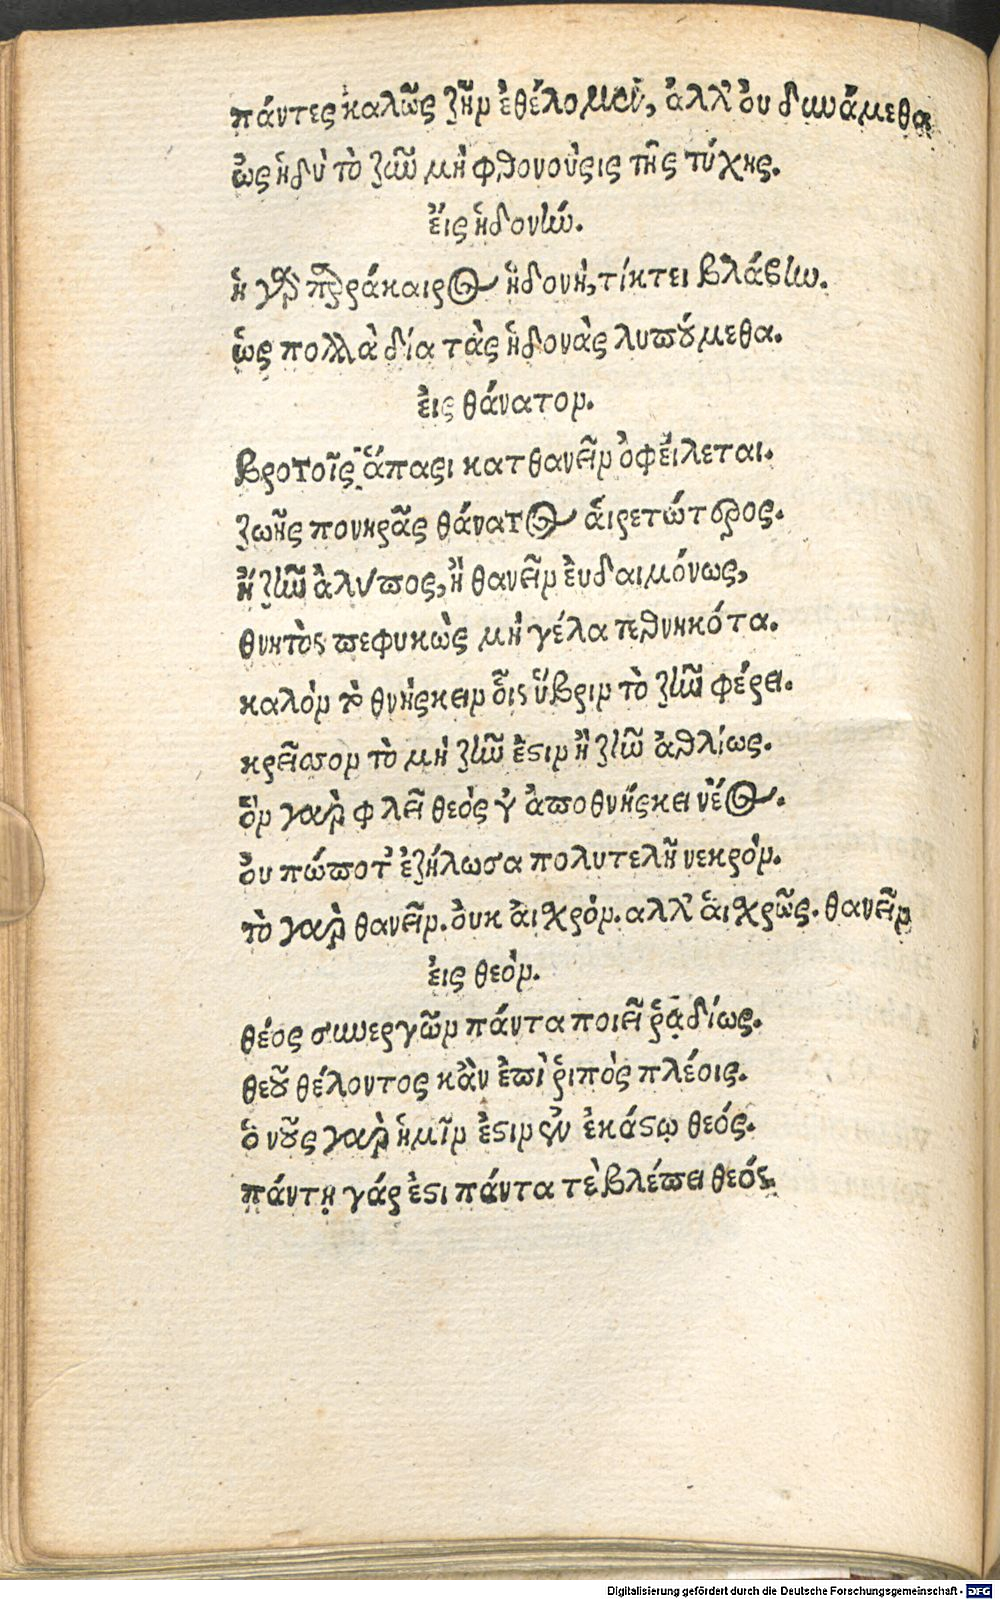 πάντες καλῶς ζῆν ἐθέλομεν, ἀλλ' ὀυ δυνάμεθα
ὡς ἡδὺ τὸ ζῆν μὴ φθονούσις τῆς τύχης.
ἐις ἡδονήν.
ἡ γὰρ παράκαιρος ἡδονὴ, τίκτει βλάβην.
ὡς πολλὰ δία τὰς ἡδονὰς λυπούμεθα.
ἐις θάνατον.
βροτοῖς ἅπασι κατθανεῖν ὀφείλεται.
ζωῆς πονηρᾶς θάνατος ἁιρετώτερος.
ἢ ζῆν ἀλύπος, ἢ θανεῖν ἐυδαιμόνως,
θνητὸς πεφυκὼς μὴ γέλα τεθνηκότα.
καλὸν τὸ θνήσκειν ὃις ὕβριν τὸ ζῆν φέρει.
κρεῖσσον τὸ μὴ ζῆν ἐστιν ἢ ζῆν ἀθλίως.
ὃν γαρ φιλεῖ θεὸς ἀποθνήσκει νέος.
ὀυ πώποτ' ἐζήλωσα πολυτελῆ νεκρόν.
τὸ γαρ θανεῖν. ὀυκ ἀισχρόν. αλλ' ἀισχρῶς. θανεῖν
ἐις θεόν.
θέος συνεργῶν πάντα ποιεῖ ῥᾳδίως.
θεοῦ θέλοντος κἂν ἐπὶ ῥιπὸς πλέοις.
ὁ νοῦς γαρ ἡμῖν ἐστιν ἐν ἑκάστῳ θεός.
πάντη γάρ ἐστι πάντα τὲ βλέπει θεός.
Digitalisierung gefördert durch die Deutsche Forschungsgemeinschaft - DFG